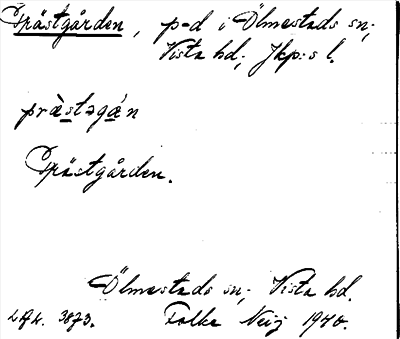 Prästgården, p-d i Ölmestads sn;
Vista hd; Jkp:s l.
prästəgán
Prästgården.
Ölmestads sn; Vista hd.
3873. Folke Neij 1940.